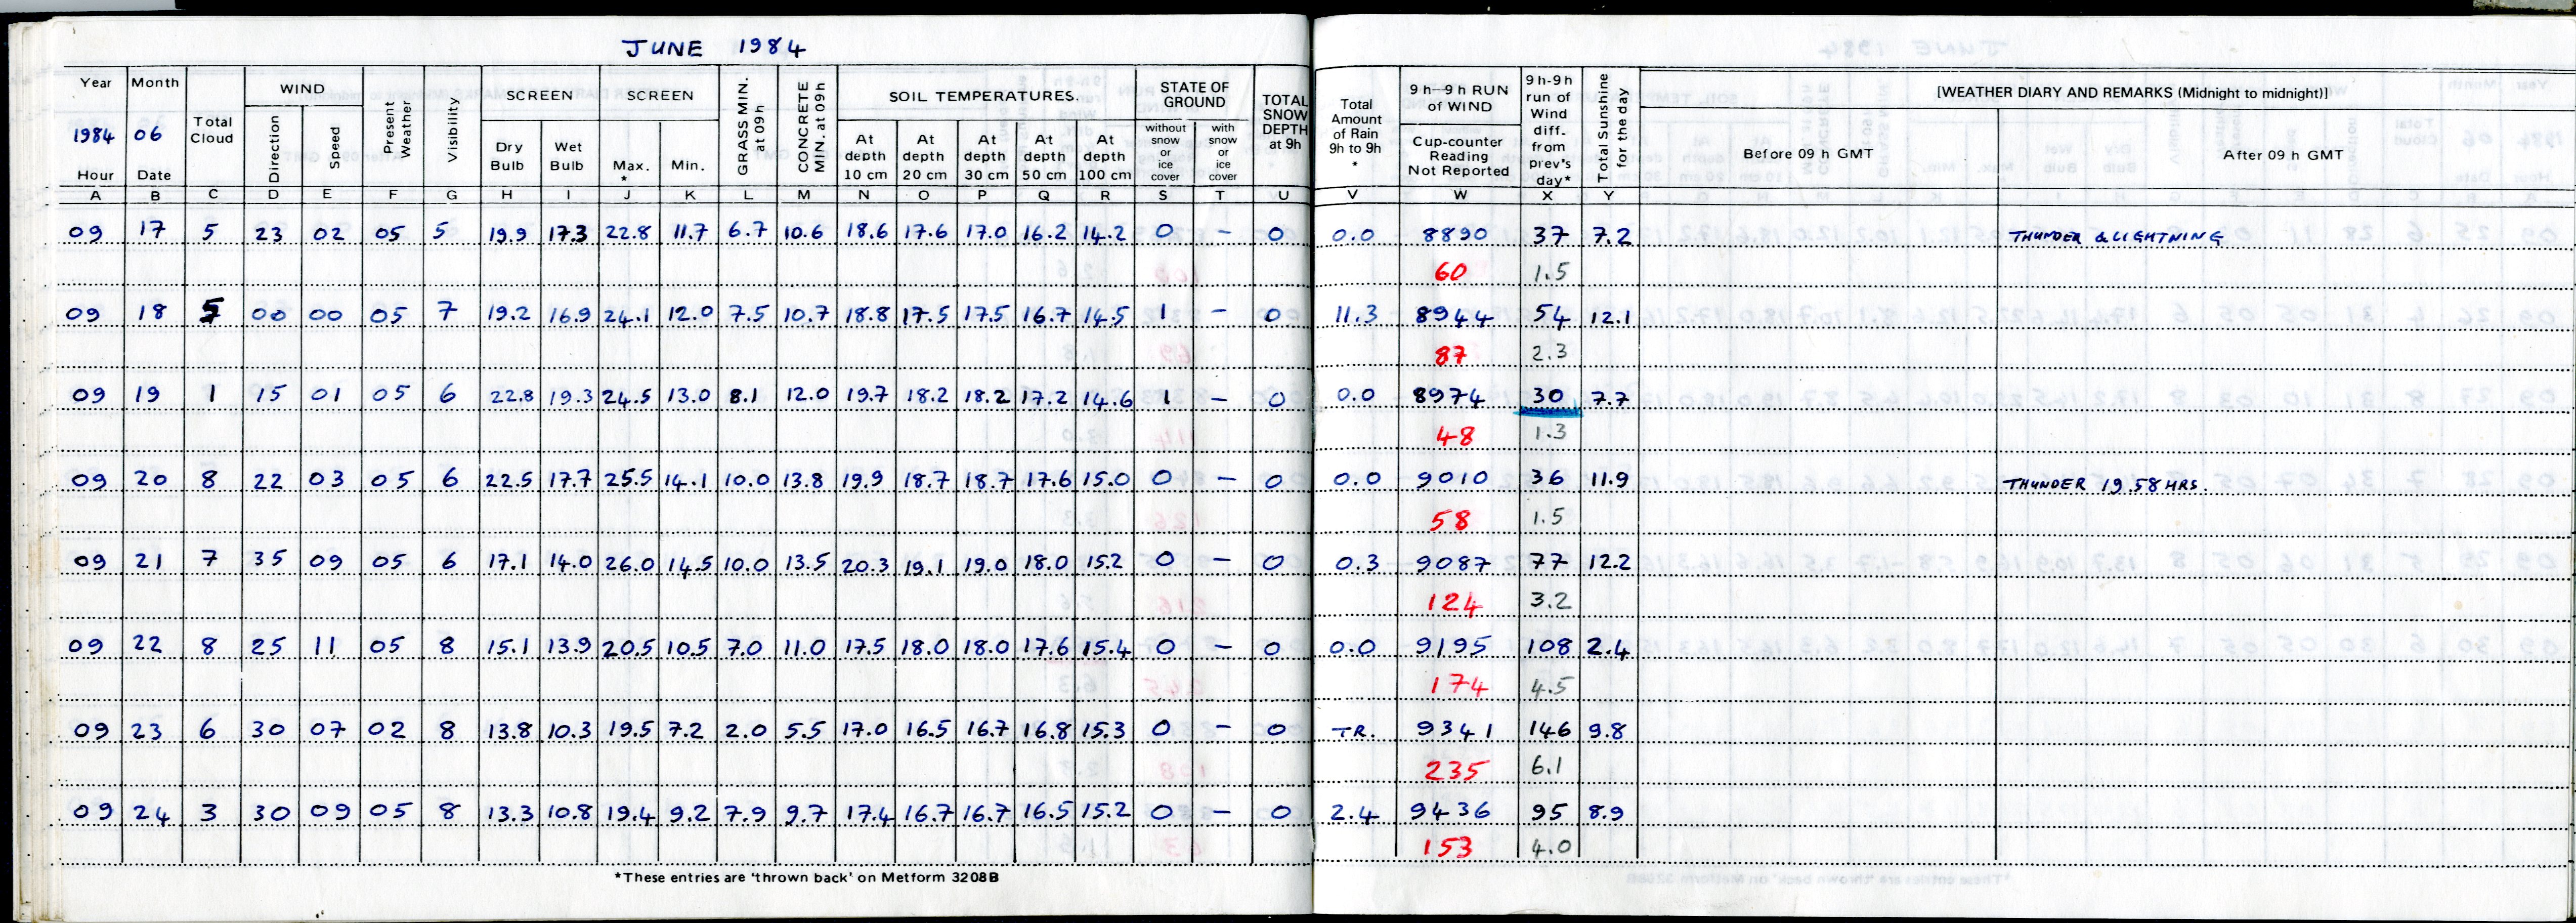 JUNE 1984
Year Month Total Cloud WIND Present Weather Visibility SCREEN SCREEN GRASS MIN. at 09h CONCRETE MIN. at 09h SOIL TEMPERATURES. STATE OF GROUND TOTAL SNOW DEPTH at 9h Total Amount of Rain 9h to 9h * 9 h—9 h RUN of WIND 9 h-9 h run of Wind diff. from prev's day* Total Sunshine for the day [WEATHER DIARY AND REMARKS (Midnight to midnight)]
1984 06 Direction Speed Dry Bulb Wet Bulb Max. * Min. At depth 10 cm At depth 20 cm At depth 30 cm At depth 50 cm At depth 100 cm without snow or ice cover with snow or ice cover Cup-counter Reading Not Reported Before 09 h GMT After 09 h GMT
Hour Date
A B C D E F G H I J K L M N O P Q R S T U V W X Y
09 17 5 23 02 05 5 19.9 17.3 22.8 11.7 6.7 10.6 18.6 17.6 17.0 16.2 14.2 0 – 0 0.0 8890 37 7.2 THUNDER & LIGHTNING
60 1.5
09 18 5 00 00 05 7 19.2 16.9 24.1 12.0 7.5 10.7 18.8 17.5 17.5 16.7 14.5 1 – 0 11.3 8944 54 12.1
87 2.3
09 19 1 15 01 05 6 22.8 19.3 24.5 13.0 8.1 12.0 19.7 18.2 18.2 17.2 14.6 1 – 0 0.0 8974 30 7.7
48 1.3
09 20 8 22 03 05 6 22.5 17.7 25.5 14.1 10.0 13.8 19.9 18.7 18.7 17.6 15.0 0 – 0 0.0 9010 36 11.9 THUNDER 19.58 HRS.
58 1.5
09 21 7 35 09 05 6 17.1 14.0 26.0 14.5 10.0 13.5 20.3 19.1 19.0 18.0 15.2 0 – 0 0.3 9087 77 12.2
124 3.2
09 22 8 25 11 05 8 15.1 13.9 20.5 10.5 7.0 11.0 17.5 18.0 18.0 17.6 15.4 0 – 0 0.0 9195 108 2.4
174 4.5
09 23 6 30 07 02 8 13.8 10.3 19.5 7.2 2.0 5.5 17.0 16.5 16.7 16.8 15.3 0 – 0 TR. 9341 146 9.8
235 6.1
09 24 3 30 09 05 8 13.3 10.8 19.4 9.2 7.9 9.7 17.4 16.7 16.7 16.5 15.2 0 – 0 2.4 9436 95 8.9
153 4.0
*These entries are 'thrown back' on Metform 3208B